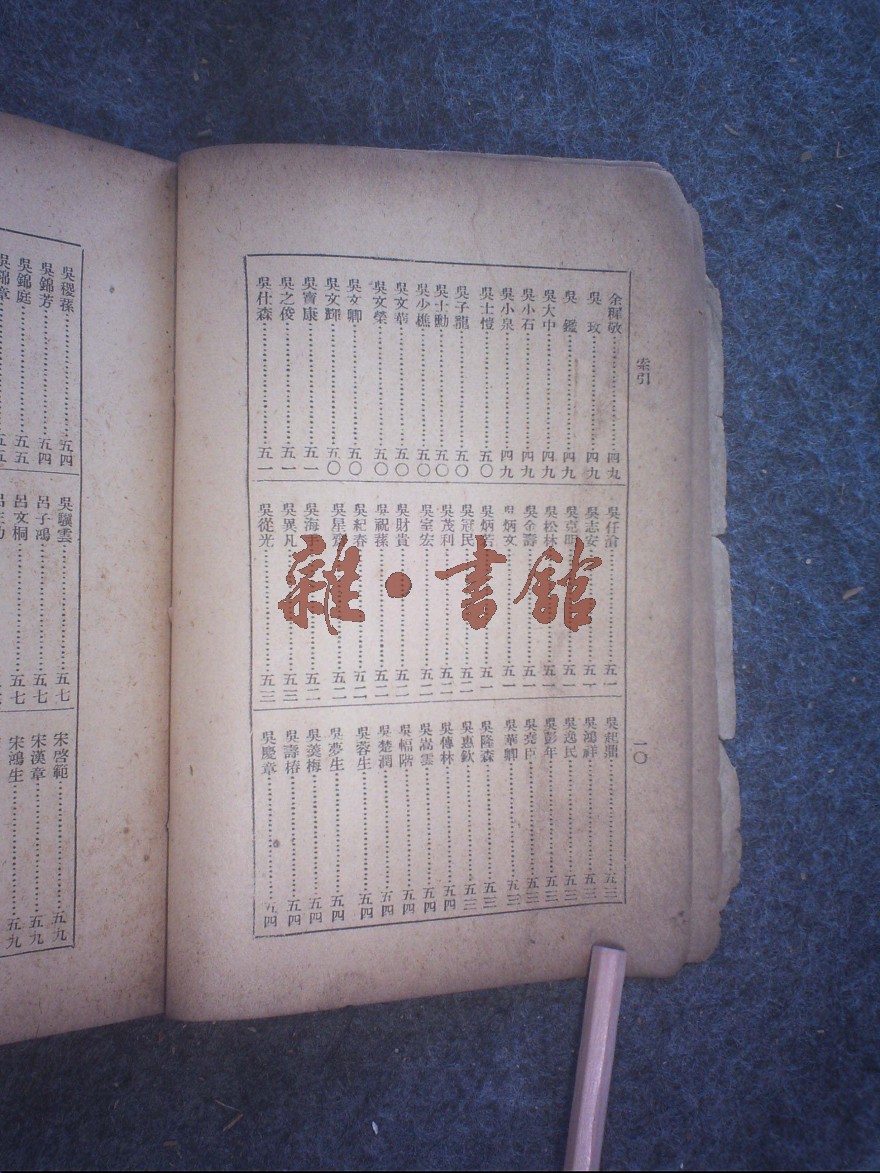 索引
一〇
余輝敏 四九
吳玫 四九
吳鑑 四九
吳大中 四九
吳小石 四九
吳小泉 四九
吳士愷 五〇
吳子龍 五〇
吳士勳 五〇
吳少樵 五〇
吳文華 五〇
吳文榮 五〇
吳文卿 五〇
吳文輝 五〇
吳寶康 五一
吳之俊 五一
吳仕森 五一
吳仟諭 五一
吳志安 五一
吳克明 五一
吳松林 五一
吳金壽 五一
吳炳文 五一
吳炳若 五一
吳冠民 五二
吳茂利 五二
吳室宏 五二
吳財貴 五二
吳祝蓀 五二
吳紀春 五二
吳星 五二
吳海 五二
吳異凡 五三
吳從光 五三
吳起鼎 五三
吳鴻祥 五三
吳逸民 五三
吳彭年 五三
吳堯臣 五三
吳華卿 五三
吳隆森 五三
吳惠欽 五三
吳傳林 五四
吳嵩雲 五四
吳幅階 五四
吳楚潤 五四
吳蓉生 五四
吳夢生 五四
吳羹梅 五四
吳壽椿 五四
吳慶章 五四
吳稷蓀 五四
吳錦芳 五四
吳錦庭 五五
吳錦章 五五
吳驥雲 五七
呂子鴻 五七
呂文桐 五七
宋啓範 五九
宋漢章 五九
宋鴻生 五九
雜·書館